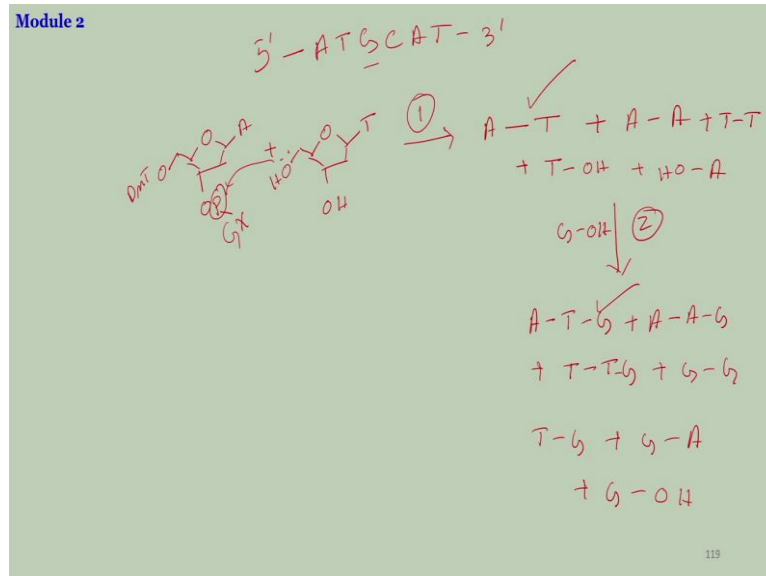 Module 2
5' - ATGCAT - 3'
DMTO O A OP Gx + HO O T OH
① A - T + A - A + T-T
+ T-OH + HO-A
G-OH ②
A-T-G + A-A-G
+ T-T-G + G-G
T-G + G-A
+ G-OH
119